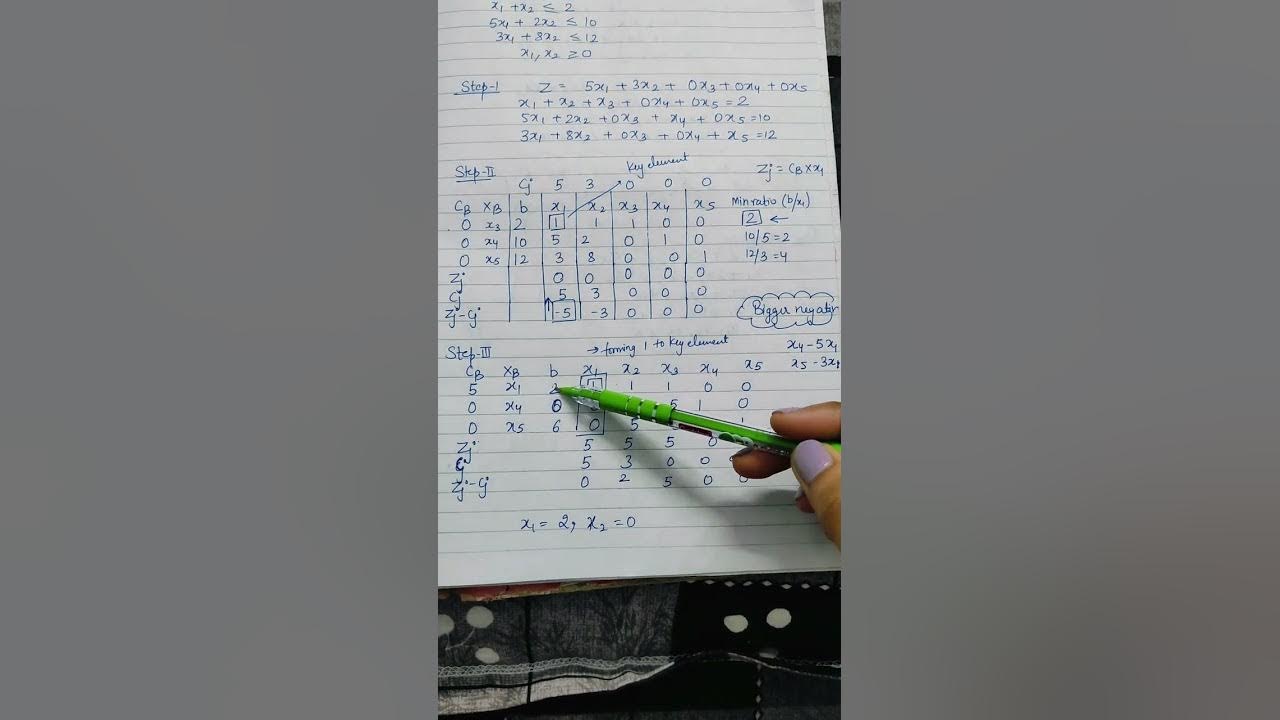 x₁ + x₂ ≤ 2
5x₁ + 2x₂ ≤ 10
3x₁ + 8x₂ ≤ 12
x₁, x₂ ≥ 0
Step-I Z = 5x₁ + 3x₂ + 0x₃ + 0x₄ + 0x₅
x₁ + x₂ + x₃ + 0x₄ + 0x₅ = 2
5x₁ + 2x₂ + 0x₃ + x₄ + 0x₅ = 10
3x₁ + 8x₂ + 0x₃ + 0x₄ + x₅ = 12
Key element
Step-II Zj = CB × x₁
Cj 5 3 0 0 0
CB XB b x₁ x₂ x₃ x₄ x₅ Min ratio (b/x₁)
0 x₃ 2 1 1 1 0 0 2 ←
0 x₄ 10 5 2 0 1 0 10/5 = 2
0 x₅ 12 3 8 0 0 1 12/3 = 4
Zj 0 0 0 0 0
Cj 5 3 0 0 0
Zj - Cj -5 -3 0 0 0 Bigger negativ
Step-III → forming 1 to key element x₄ - 5x₁
CB XB b x₁ x₂ x₃ x₄ x₅ x₅ - 3x₁
5 x₁ 2 1 1 1 0 0
0 x₄ 0 5 1 0
0 x₅ 6 0 5 1
Zj 5 5 5 0
Cj 5 3 0 0
Zj - Cj 0 2 5 0 0
x₁ = 2, x₂ = 0